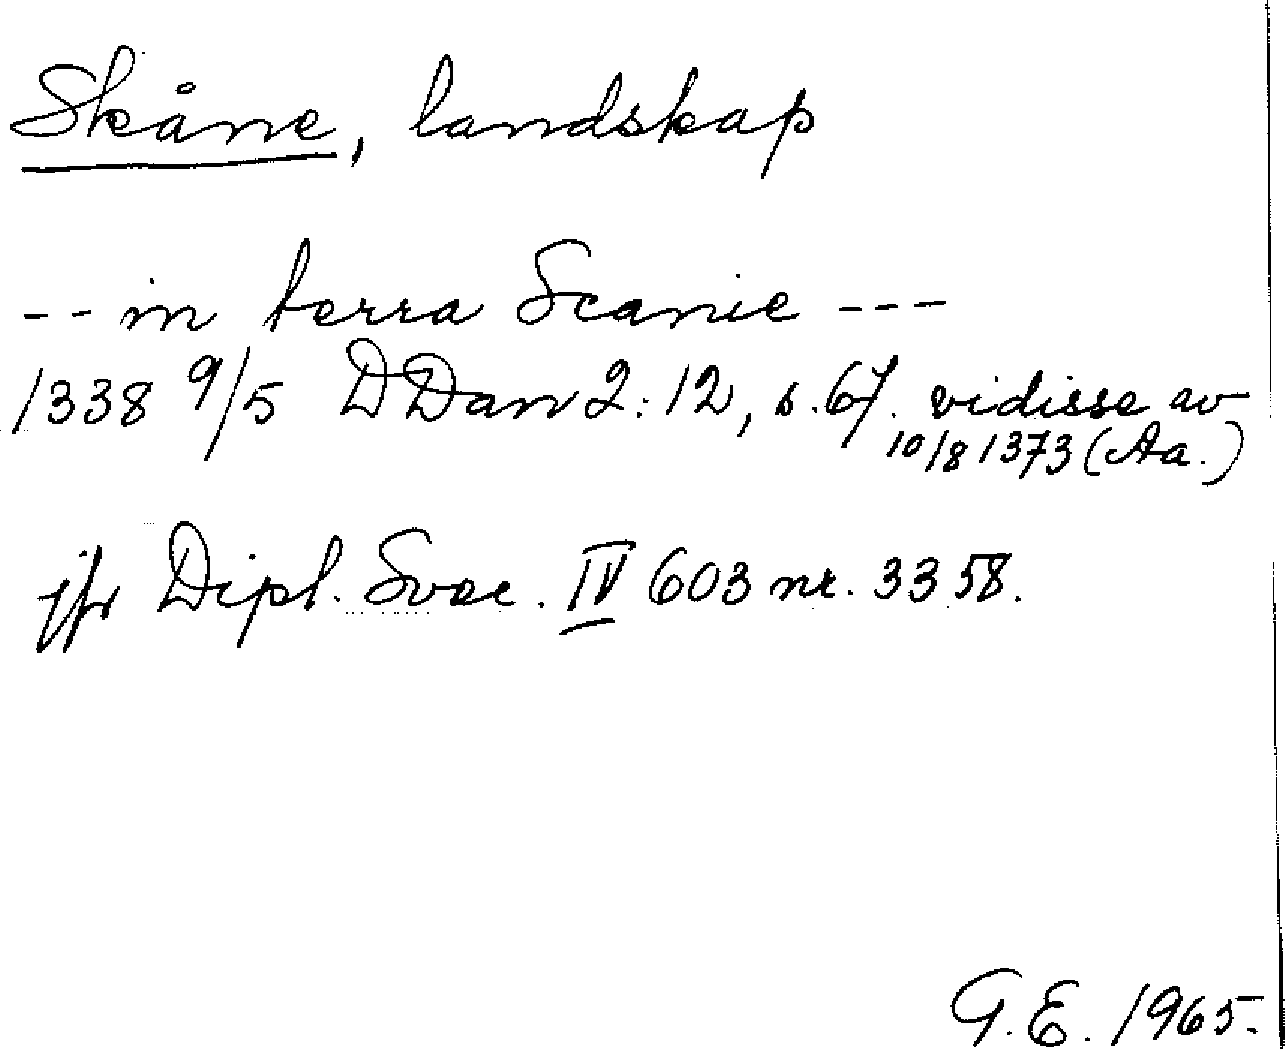 Skåne, landskap
-- in terra Scanie ---
1338 9/5 DDan 2:12, s. 67. vidisse av
10/8 1373 (Aa.)
jfr Dipl. Svec. IV 603 nr. 3358.
G.E. 1965.